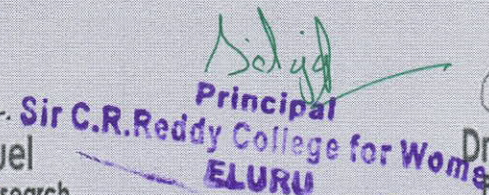 Principal
Sir C.R.Reddy College for Wome
uel
Dr
ELURU
search